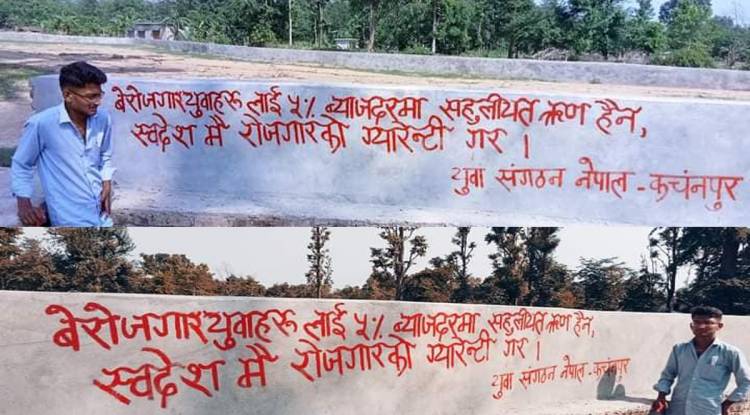 बेरोजगार युवाहरू लाई ५% ब्याजदरमा सहुलीयत ऋण हैन,
स्वदेश मै रोजगारको ग्यारेन्टी गर।
युवा संगठन नेपाल - कचंनपुर
बेरोजगार युवाहरू लाई ५% ब्याजदरमा सहुलीयत ऋण हैन,
स्वदेश मै रोजगारको ग्यारेन्टी गर।
युवा संगठन नेपाल - कचंनपुर